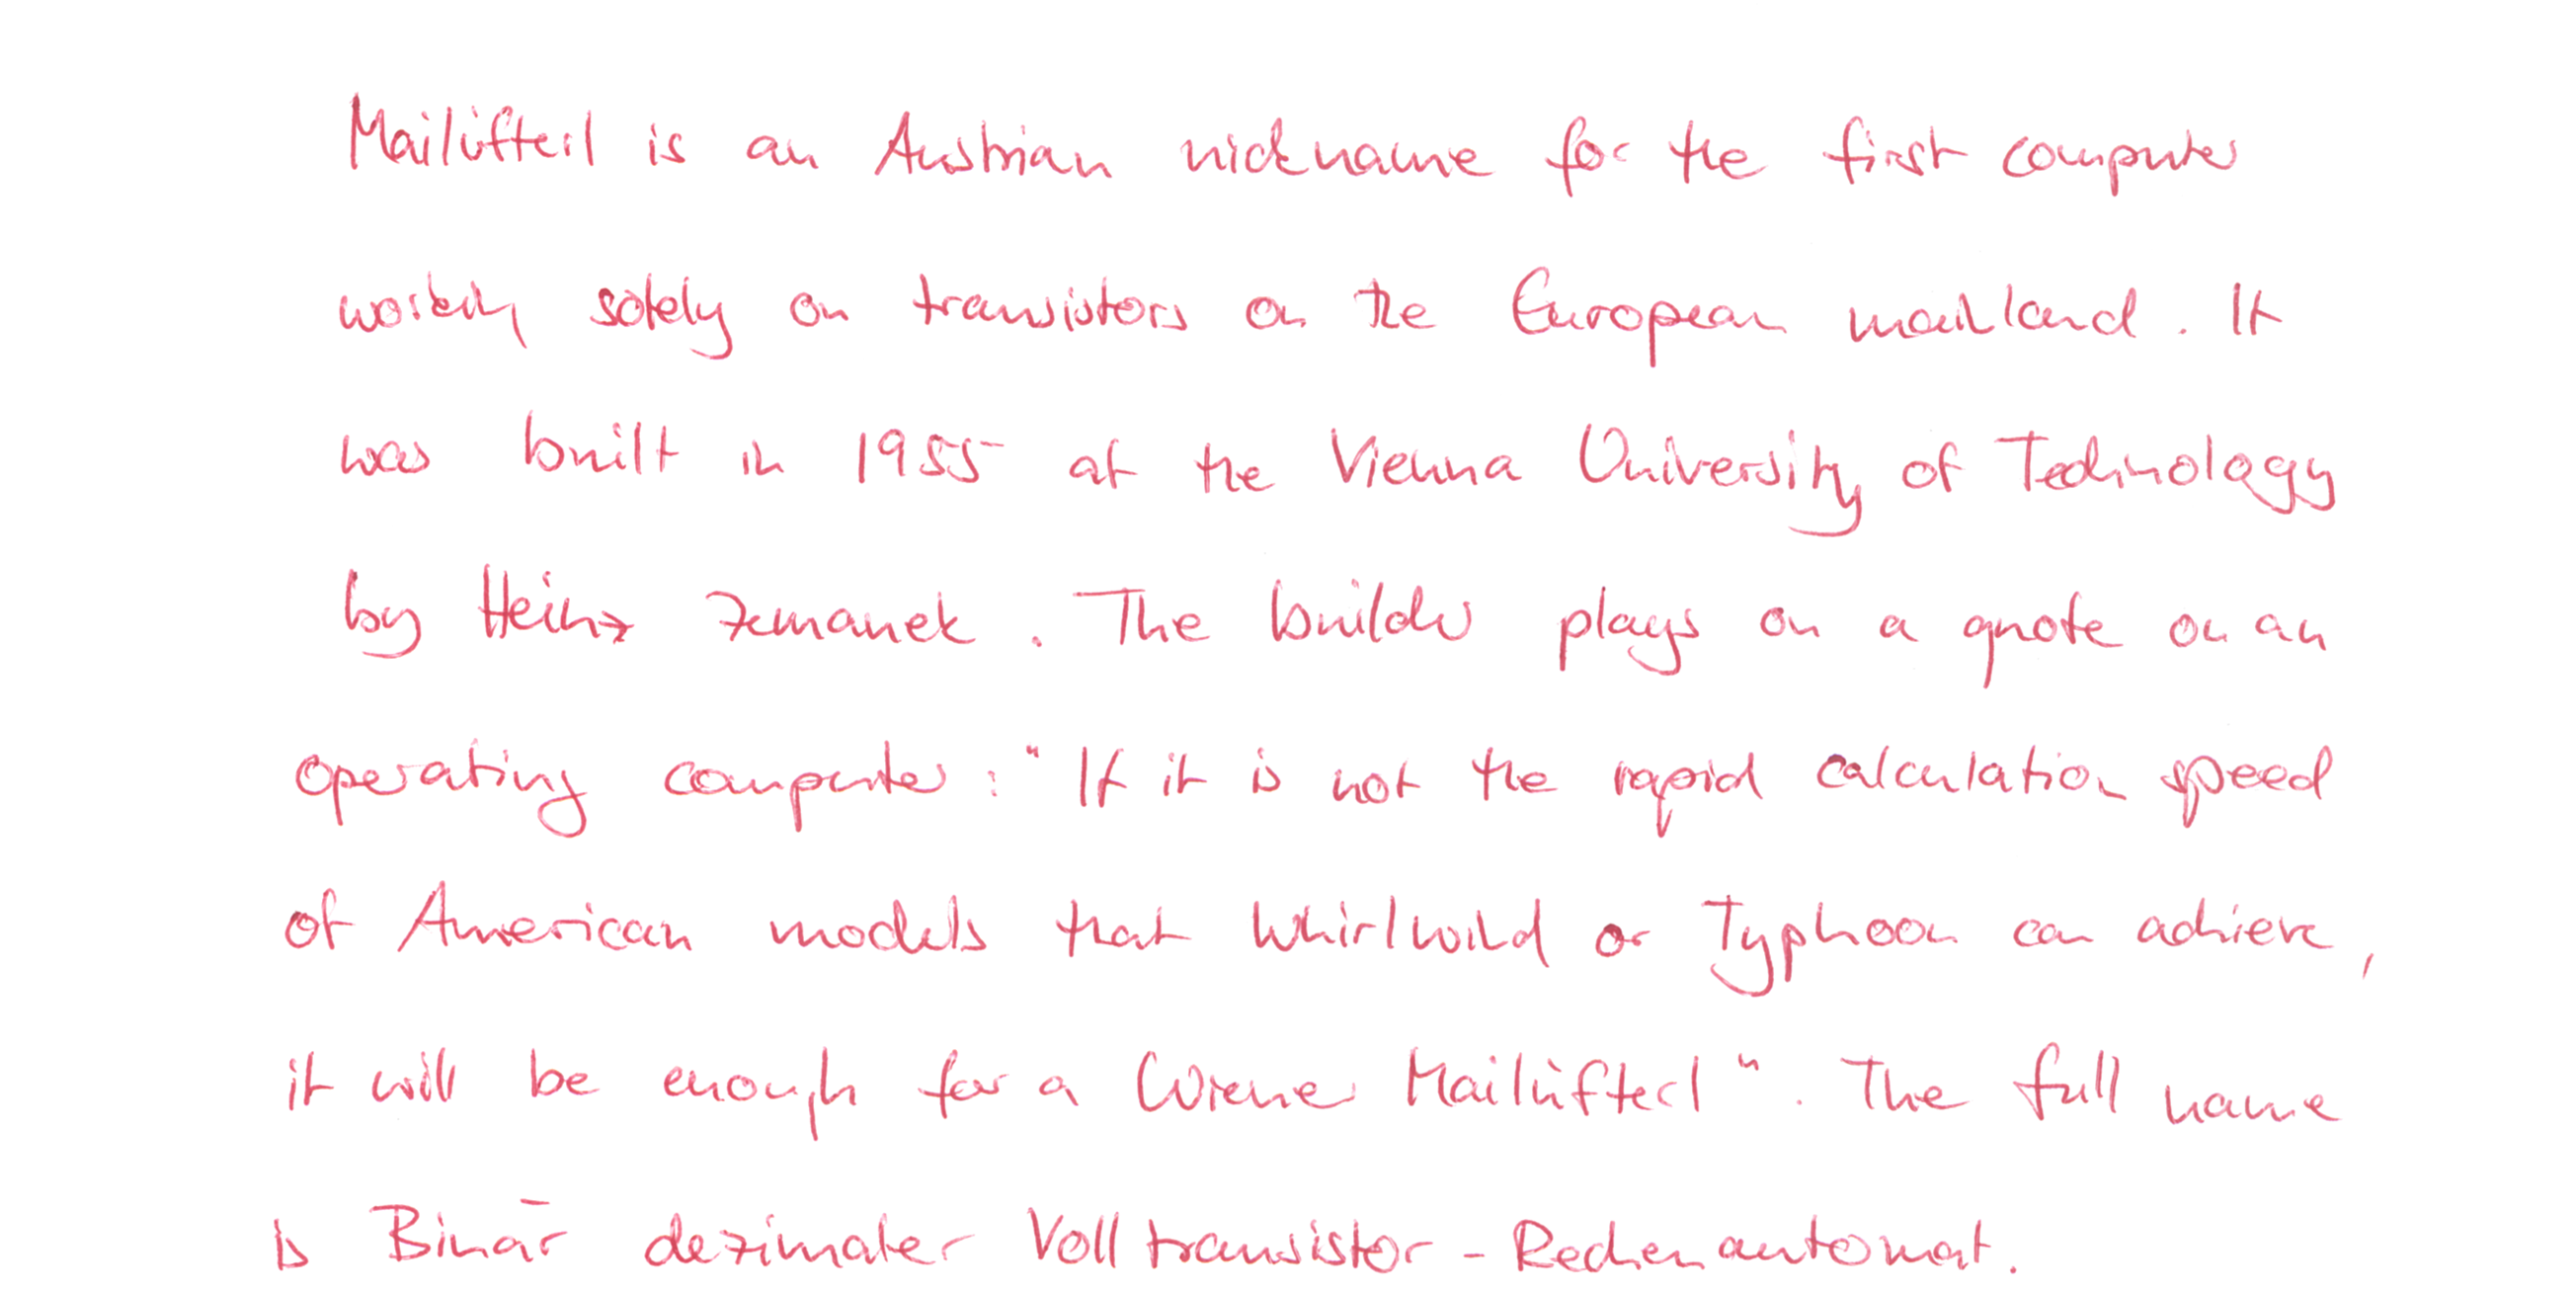 Mailüfterl is an Austrian nickname for the first computer
working solely on transistors on the European mainland. It
was built in 1955 at the Vienna University of Technology
by Heinz Zemanek. The builder plays on a quote on an
operating computer: "If it is not the rapid calculation speed
of American models that Whirlwind or Typhoon can achieve,
it will be enough for a Wiener Mailüfterl". The full name
is Binär dezimaler Volltransistor-Rechenautomat.